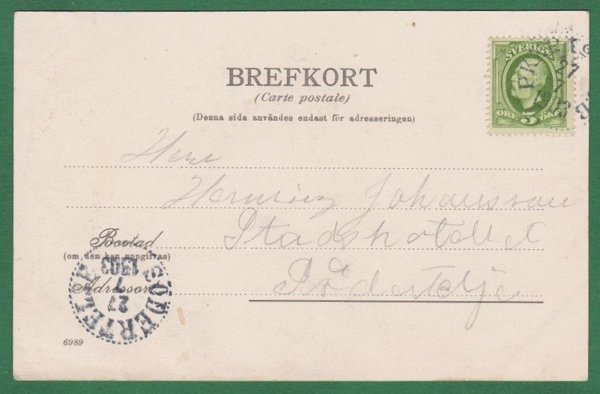 BREFKORT
(Carte postale)
(Denna sida användes endast för adresseringen)
SVERIGE
5
ÖRE
PKXP
27
Herr
Henning Johansson
Stadshotellet
Södertelje
Bostad
(om den kan uppgifvas)
Adressort
SÖDERTELJE
1903
27
6989